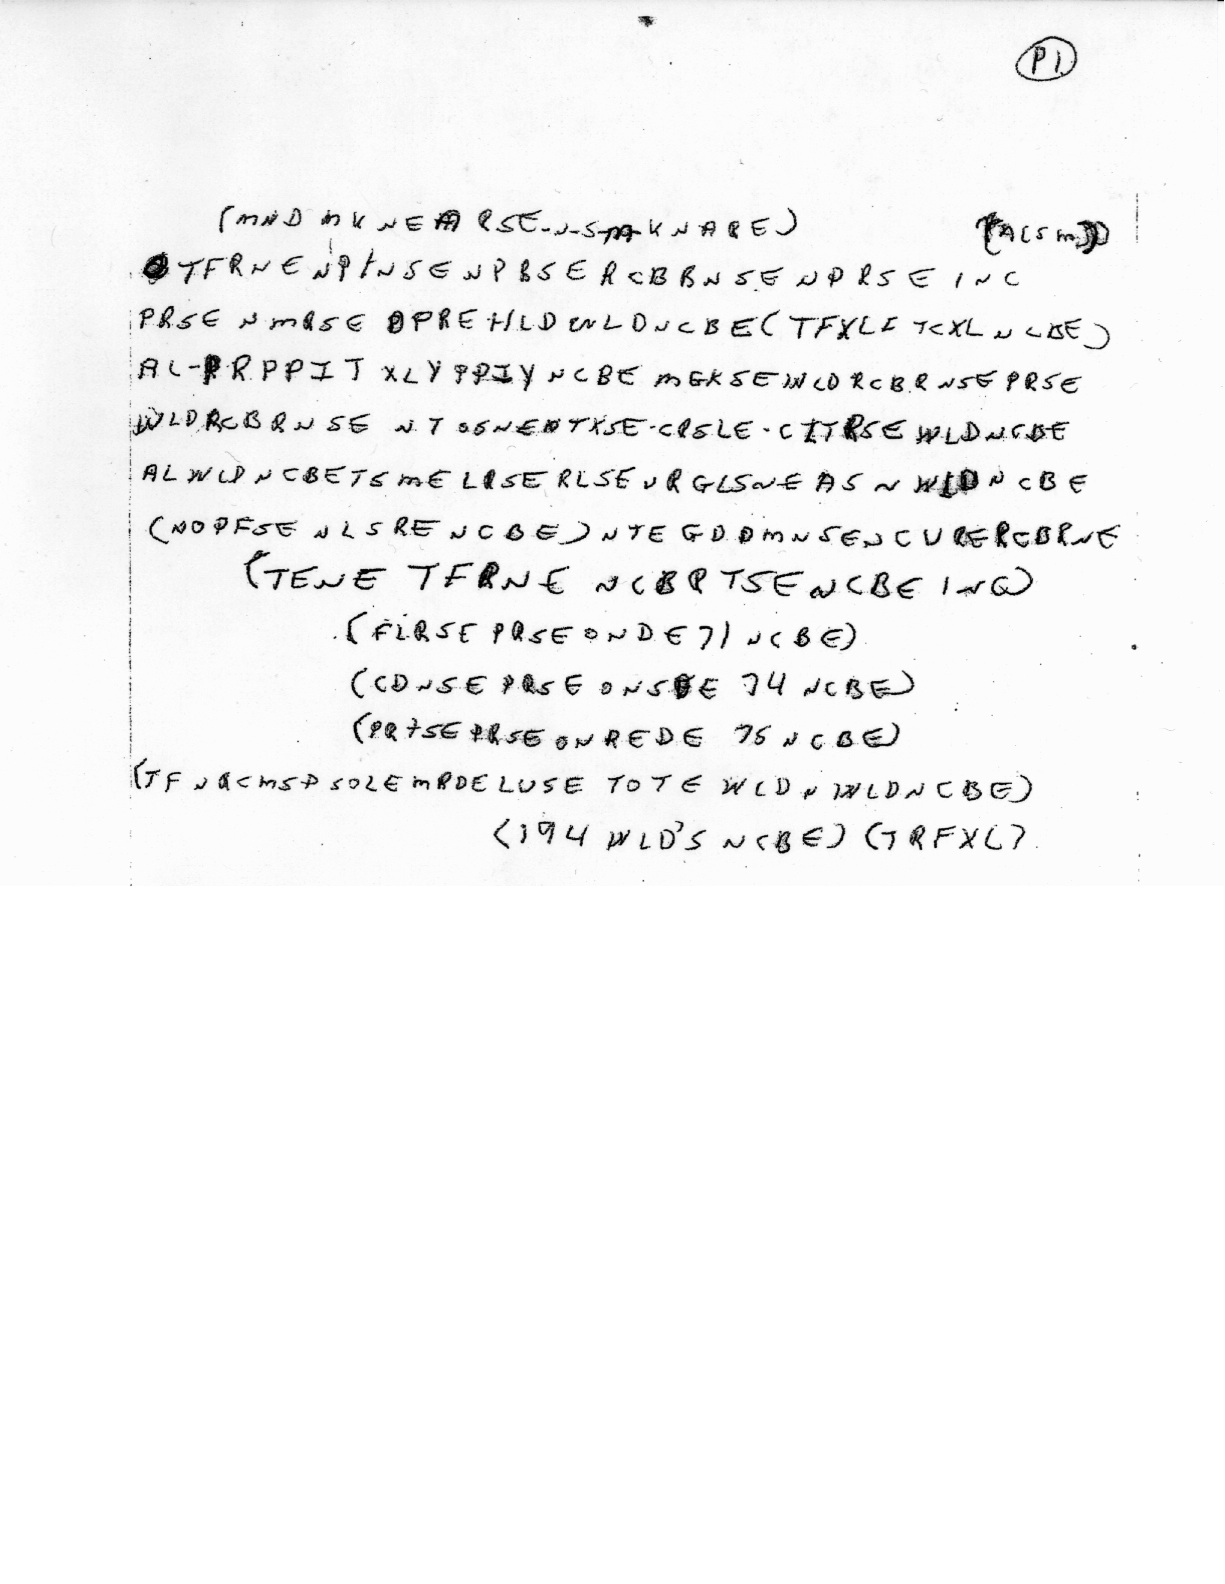 P1
(MNDMKNEARSE-N-S-M-KNARE) (ACSM)
TFRNENPINSENPBSERCBBNSENPRSEINC
PRSENMRSEOPREHLDWLDNCBE(TFXLFTCXLNCBE)
AL-PRPPITXLYPPIYNCBEMGKSEWLDRCBRNSEPRSE
WLDRCBRNSENTOSNENTXSE-CRSLE-CITRSEWLDNCBE
ALWLDNCBETSMELRSERLSEURGLSNEASNWLDNCBE
(NOPFSENLSRENCBE)NTEGDDMNSENCURERCBRNE
(TENETFRNENCBRTSENCBEINC)
(FLRSEPRSEONDE71NCBE)
(CDNSEPRSEONSDE74NCBE)
(PRTSEPRSEONREDE75NCBE)
(TFNRCMSPSOLEMRDELUSETOTEWLDNWLDNCBE)
(194WLD'SNCBE)(TRFXL)